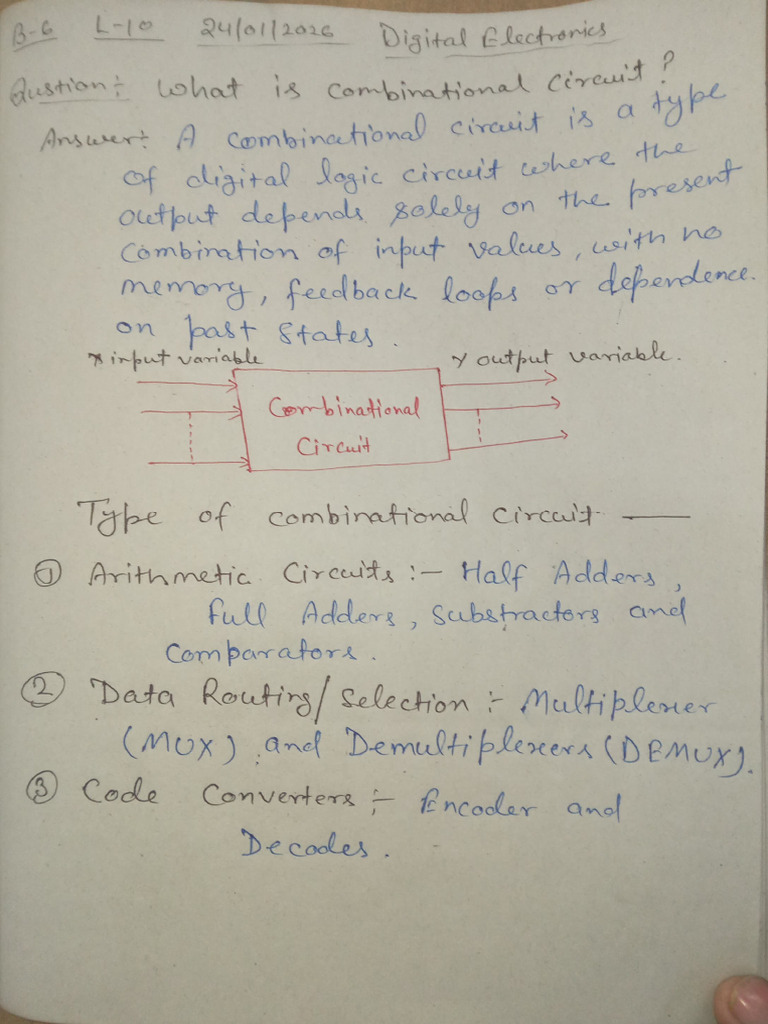 B-6 L-10 24/01/2026 Digital Electronics
Qustion:- What is combinational circuit?
Answer:- A combinational circuit is a type
of digital logic circuit where the
output depends solely on the present
combination of input values, with no
memory, feedback loops or dependence.
on past states.
x input variable Y output variable.
Combinational
Circuit
Type of combinational circuit —
① Arithmetic Circuits :- Half Adders,
Full Adders, Substractors and
Comparators.
② Data Routing/Selection :- Multiplexer
(MUX) and Demultiplexers (DEMUX).
③ Code Converters :- Encoder and
Decodes.